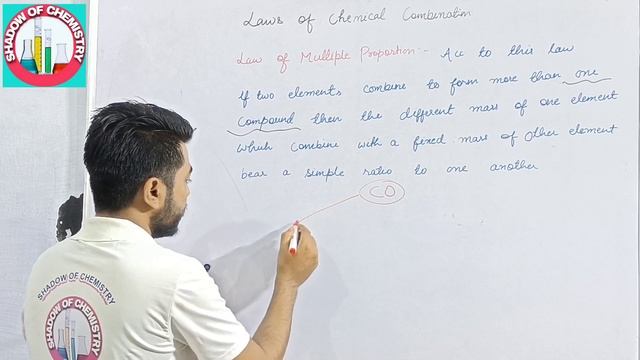 SHADOW OF CHEMISTRY
Laws of Chemical Combination
Law of Multiple Proportion:- Acc to this law
If two elements combine to form more than one
Compound then the different mass of one element
which combine with a fixed mass of other element
bear a simple ratio to one another
CO
SHADOW OF CHEMISTRY
SHADOW OF CHEMISTRY